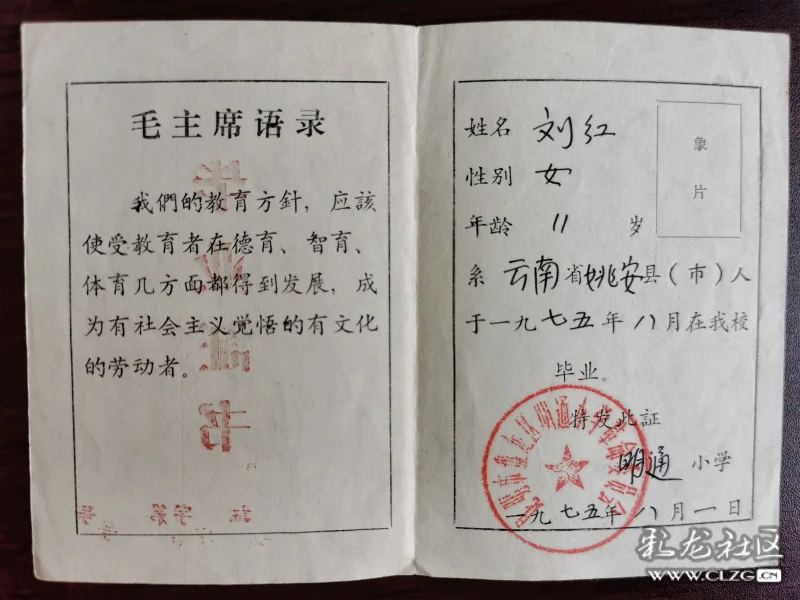 毛主席语录
我們的教育方針，应該
使受教育者在德育、智育、
体育几方面都得到发展，成
为有社会主义觉悟的有文化
的劳动者。
毕
业
証
书
証字第号
姓名 刘红
象片
性别 女
年龄 11 岁
系 云南省姚安县（市）人
于一九七五年八月在我校
毕业。
特发此証
明通 小学
一九七五年八月一日
昆明市盘龙区明通小学革命委员会
彩龙社区
WWW.CLZG.CN